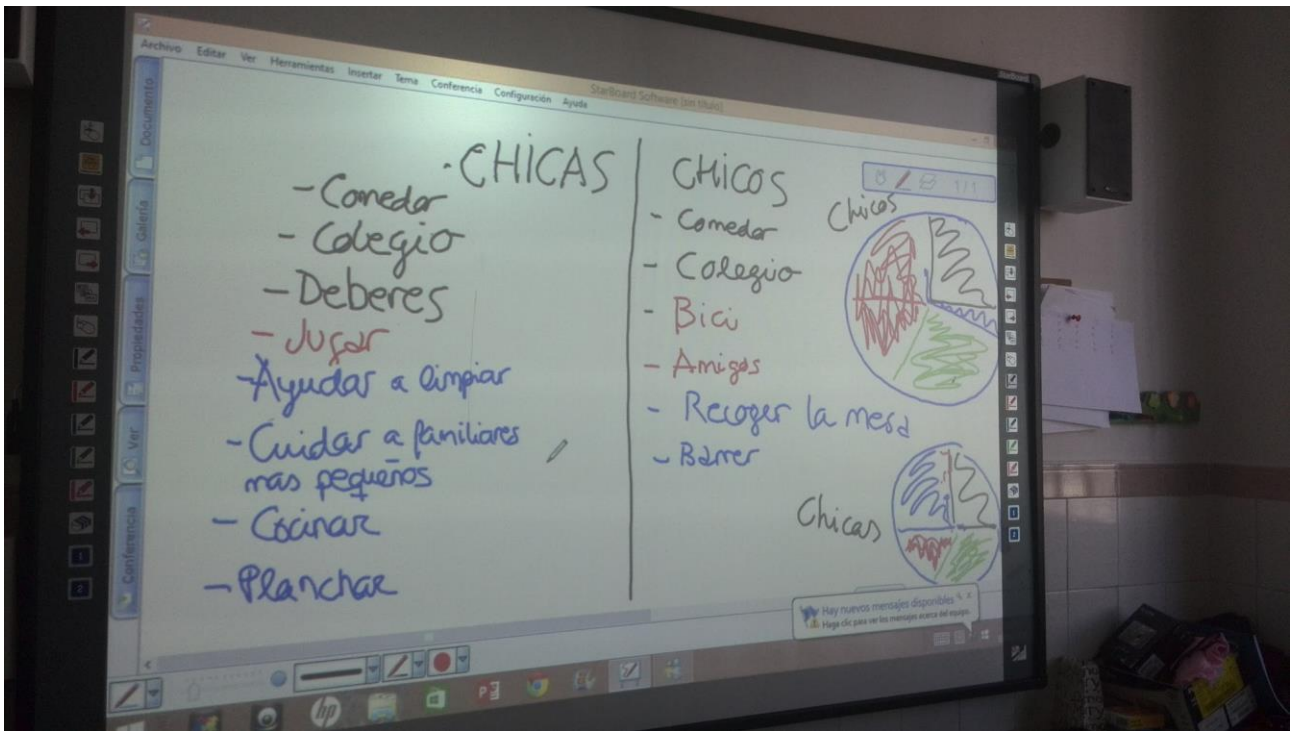 Archivo Editar Ver Herramientas Insertar Tema Conferencia Configuración Ayuda
StarBoard Software (sin título)
StarBoard
Documento
Galería
Propiedades
Ver
Conferencia
1/1
·CHICAS
- Comedor
- Colegio
- Deberes
- Jugar
- Ayudar a limpiar
- Cuidar a familiares
mas pequeños
- Cocinar
- Planchar
CHICOS
- Comedor
- Colegio
- Bici
- Amigos
- Recoger la mesa
- Barrer
Chicos
Chicas
Hay nuevos mensajes disponibles
Haga clic para ver los mensajes acerca del equipo.
1
2
1
2
hp